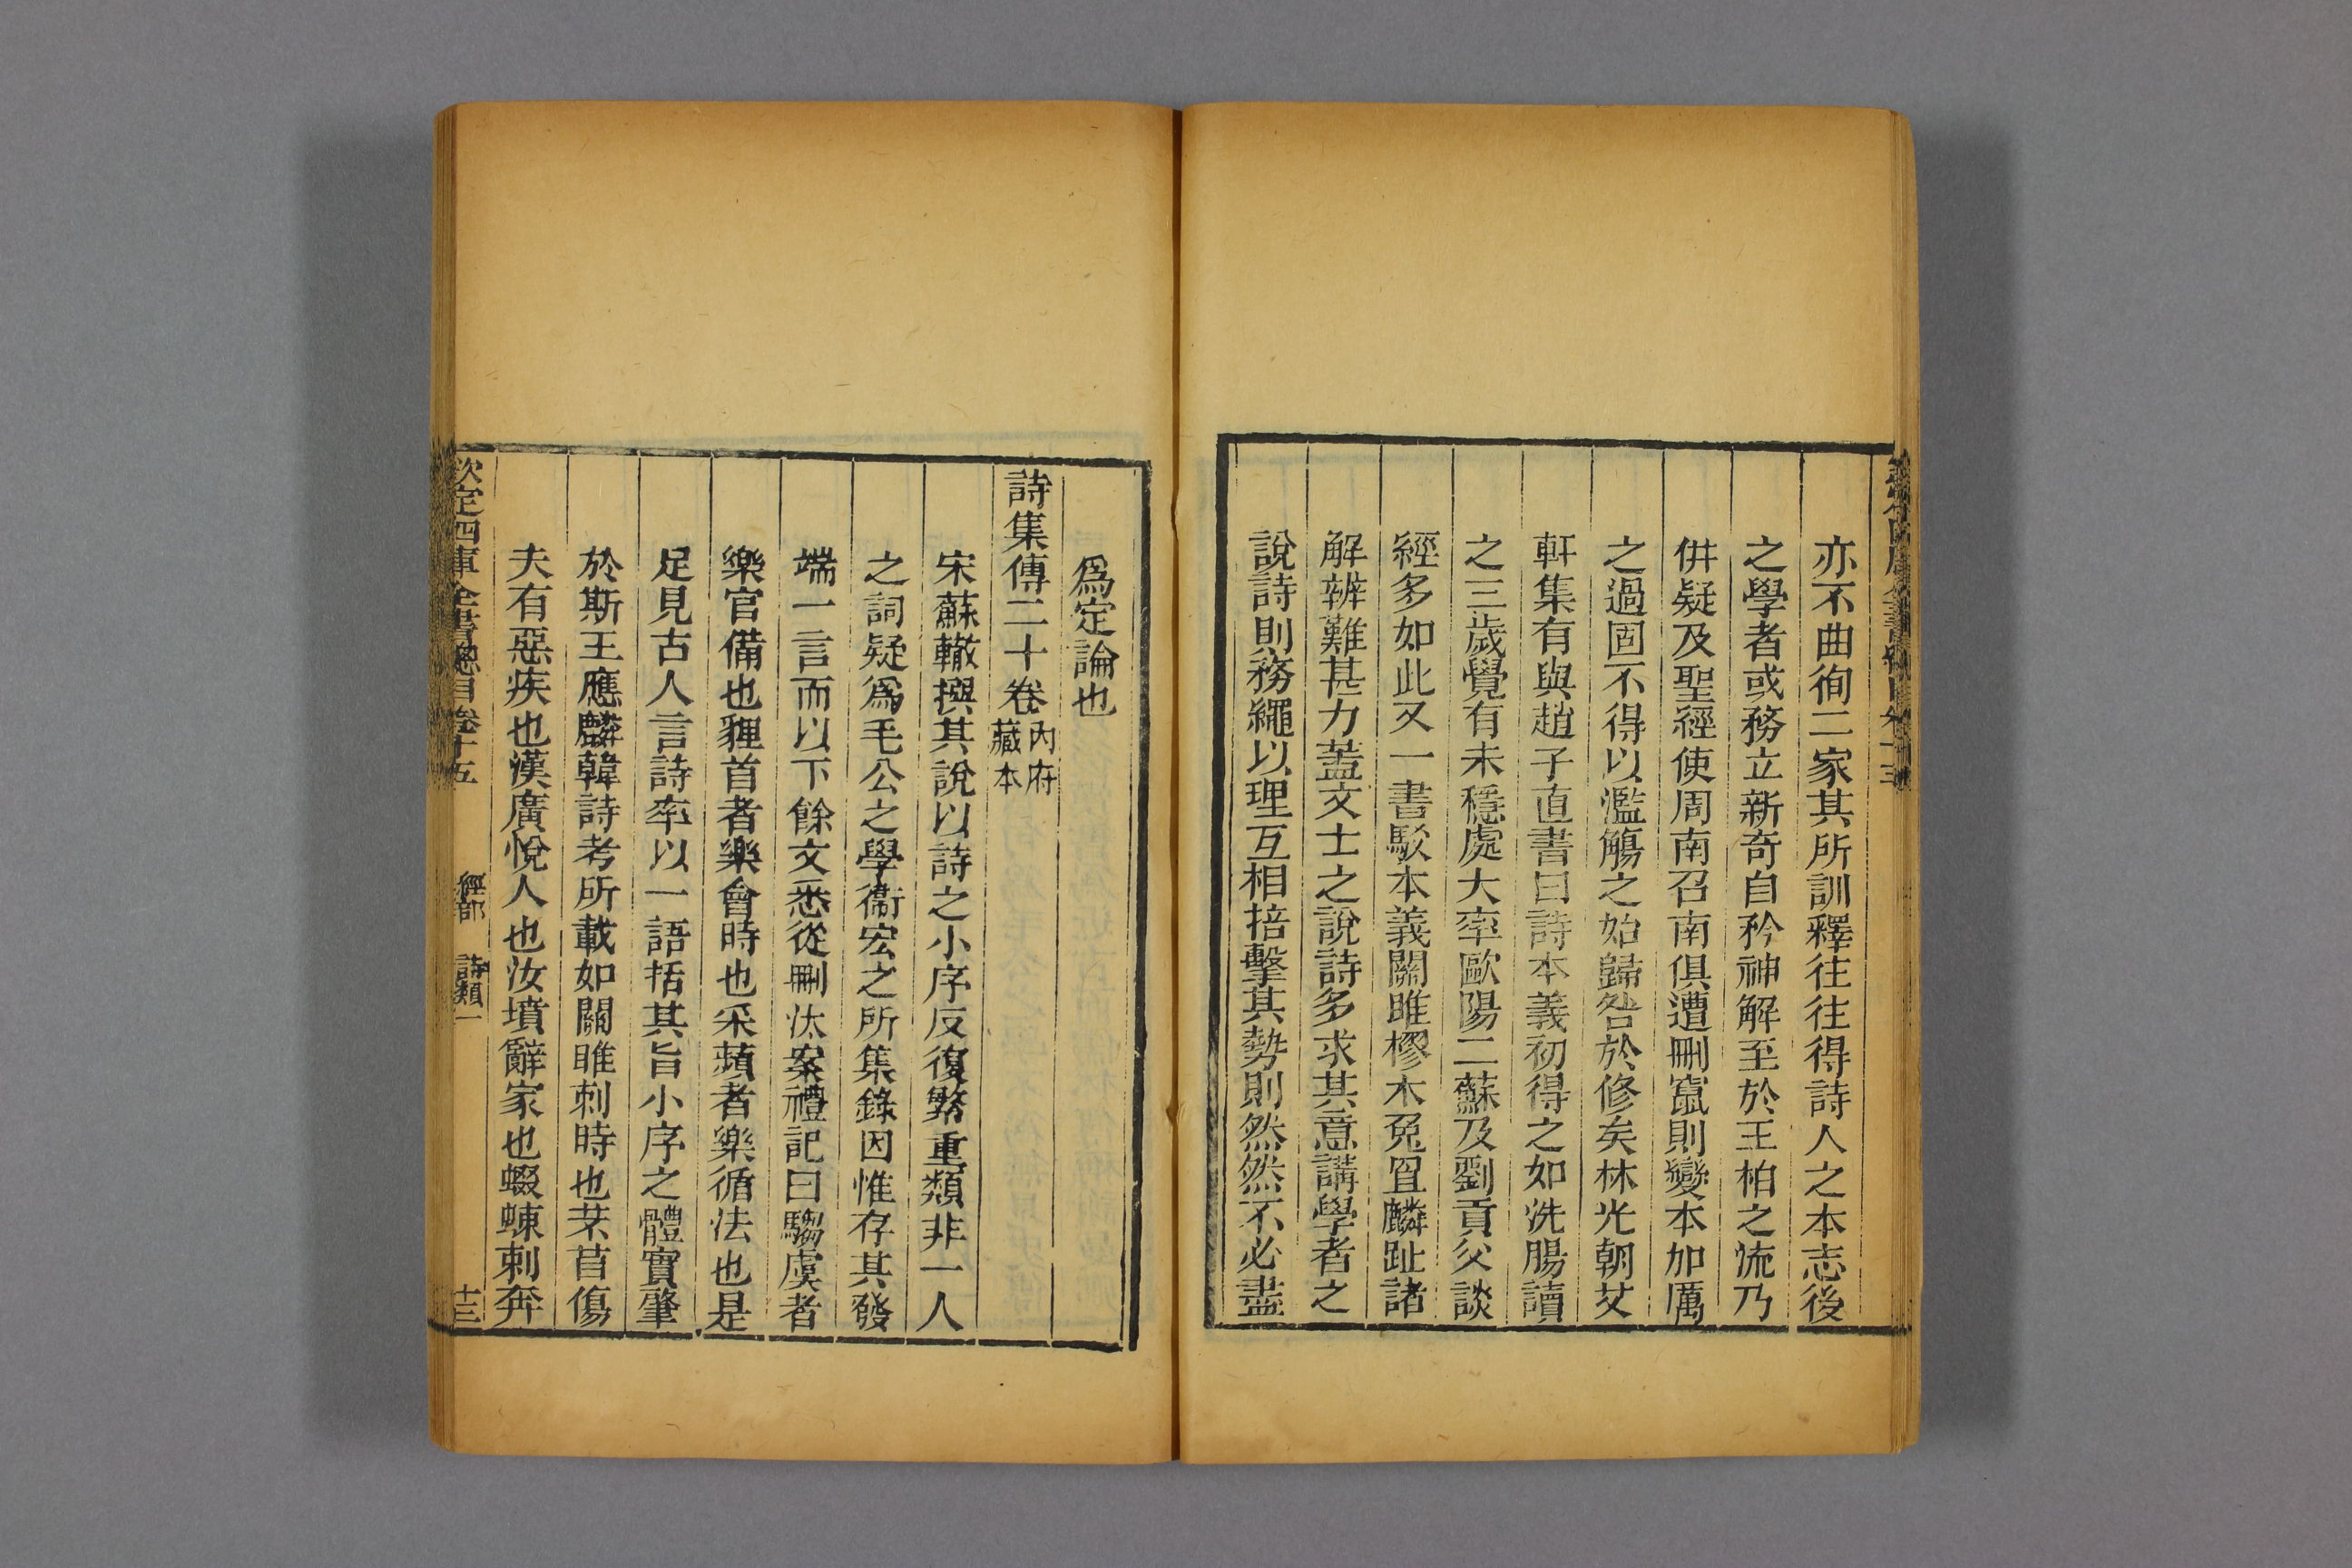 亦不曲徇二家其所訓釋往往得詩人之本志後
之學者或務立新奇自矜神解至於王柏之流乃
併疑及聖經使周南召南俱遭刪竄則變本加厲
之過固不得以濫觴之始歸咎於修矣林光朝艾
軒集有與趙子直書曰詩本義初得之如洗腸讀
之三歲覺有未穩處大率歐陽二蘇及劉貢父談
經多如此又一書駁本義關雎樛木兔罝麟趾諸
解辨難甚力蓋文士之說詩多求其意講學者之
說詩則務繩以理互相掊擊其勢則然然不必盡
爲定論也
詩集傳二十卷內府藏本
宋蘇轍撰其說以詩之小序反復繁重類非一人
之詞疑爲毛公之學衞宏之所集錄因惟存其發
端一言而以下餘文悉從刪汰案禮記曰騶虞者
樂官備也貍首者樂會時也采蘋者樂循法也是
足見古人言詩率以一語括其旨小序之體實肇
於斯王應麟韓詩考所載如關雎刺時也芣苢傷
夫有惡疾也漢廣悅人也汝墳辭家也蝃蝀刺奔
欽定四庫全書總目卷十五 經部 詩類一 十三